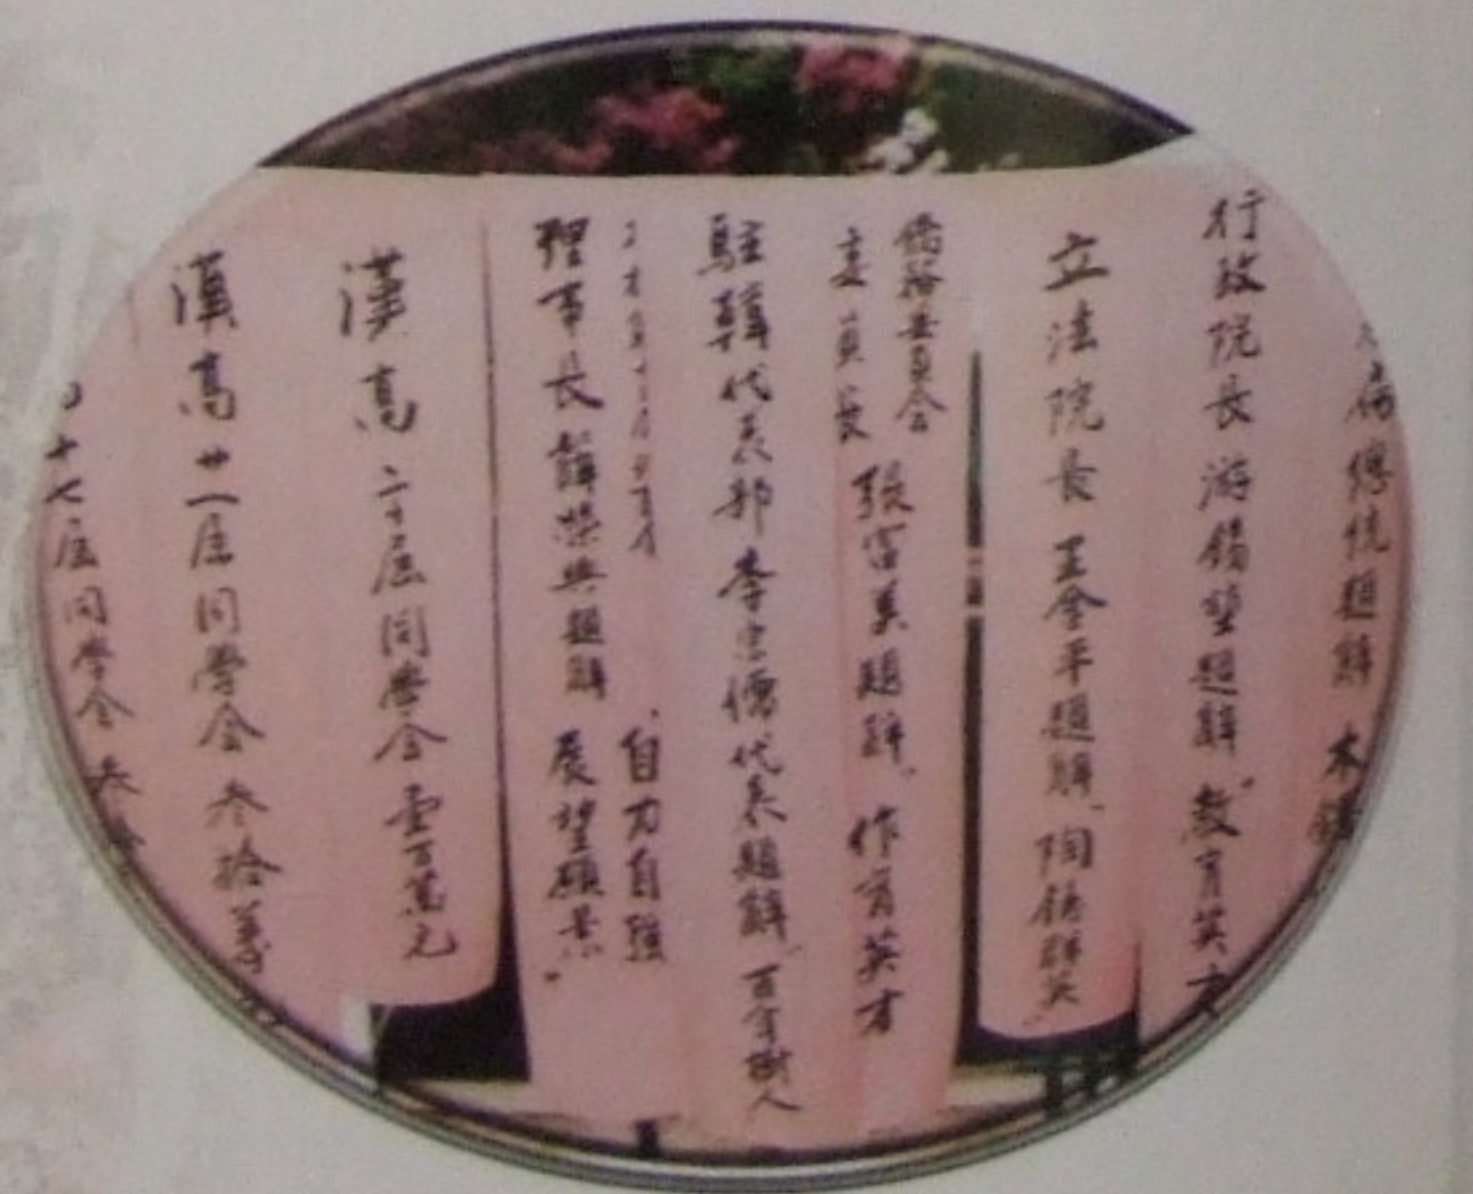 扁總統題辭 木鐸
行政院長 游錫堃題辭 教育英才
立法院長 王金平題辭 陶鑄群英
僑務委員會
委員長 張富美題辭 作育英才
駐韓代表部 李宗儒代表題辭 百年樹人
自力自強
理事長 薛榮興題辭 展望願景
漢高 二十屆同學会 壹百萬元
漢高 廿一屆同學会 叁拾萬
十七屆同學会 叁拾